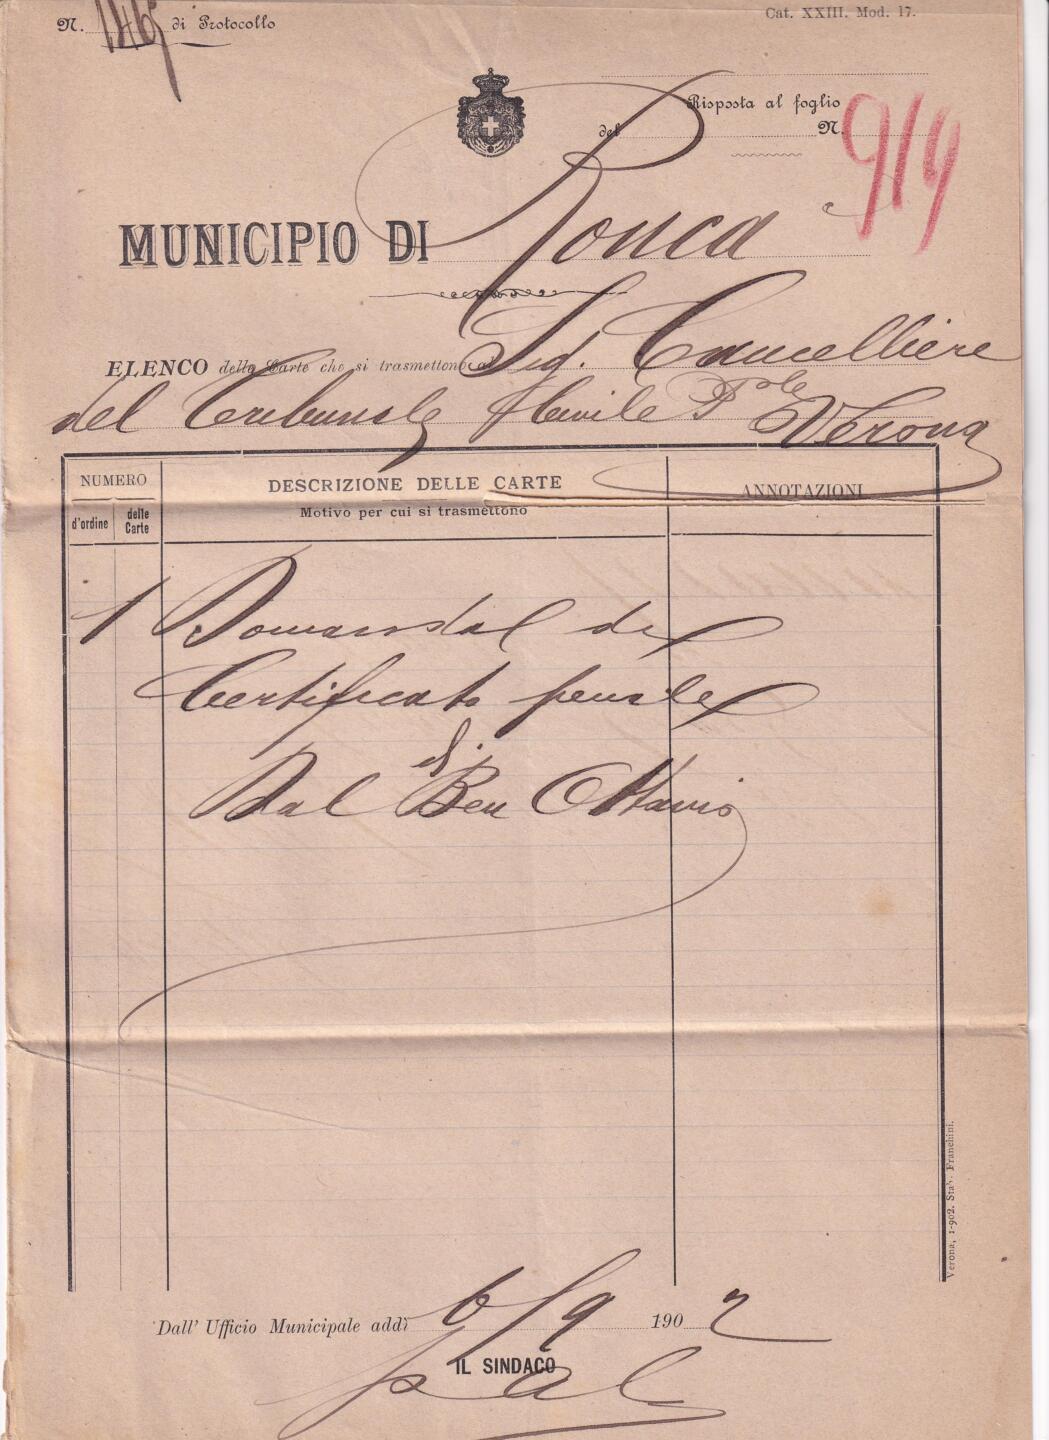 N. 1465 di Protocollo
Cat. XXIII. Mod. 17.
Risposta al foglio
del N. 919
MUNICIPIO DI Roncà
ELENCO delle Carte che si trasmettono al Sig. Cancelliere
del Tribunale Civile Pole Verona
NUMERO
d'ordine
delle Carte
DESCRIZIONE DELLE CARTE
Motivo per cui si trasmettono
ANNOTAZIONI
1 Domanda del
Certificato penale
di
Dal Ben Ottavio
Verona, 1-902. Stab. Franchini.
Dall' Ufficio Municipale addì 6/9 1902
IL SINDACO